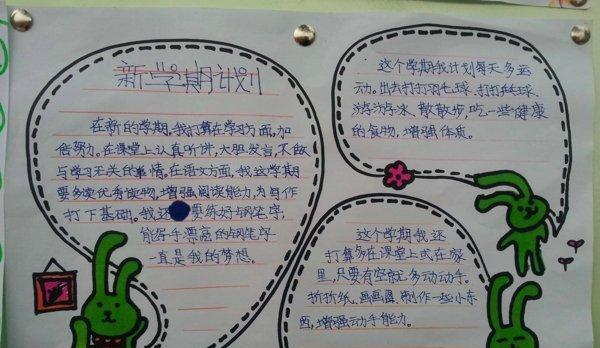 新学期计划
在新的学期,我打算在学习方面,加
倍努力。在课堂上认真听讲,大胆发言,不做
与学习无关的事情,在语文方面,我这学期
要多读优秀读物,增强阅读能力,为写作
打下基础。我还要练好钢笔字,
能写手漂亮的钢笔字
一直是我的梦想。
这个学期我计划每天多运
动。出去打打羽毛球、打打乒乓球、
游游泳、散散步,吃一些健康
的食物,增强体质。
这个学期,我还
打算多在课堂上或在家
里,只要有空就多动动手。
折折纸、画画图、制作一些小东
西,增强动手能力。